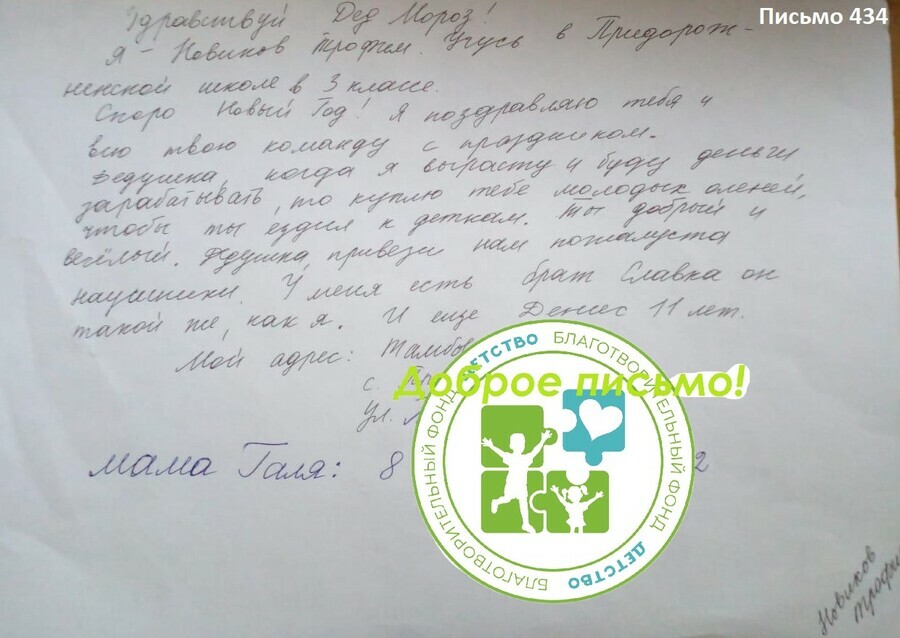 Письмо 434
Здравствуй Дед Мороз!
Я - Новиков Трофим. Учусь в Придорож-
ненской школе в 3 классе.
Скоро Новый Год! Я поздравляю тебя и
всю твою команду с праздником.
Дедушка, когда я вырасту и буду деньги
зарабатывать, то куплю тебе молодых оленей,
чтобы ты ездил к деткам. Ты добрый и
весёлый. Дедушка, привези нам пожалуста
наушники. У меня есть брат Славка он
такой же, как я. И еще Денис 11 лет.
Мой адрес: Тамбов
с. Пр
ул.
Доброе письмо!
мама Галя: 8
2
БЛАГОТВОРИТЕЛЬНЫЙ ФОНД ДЕТСТВО
БЛАГОТВОРИТЕЛЬНЫЙ ФОНД ДЕТСТВО
Новиков
Трофи